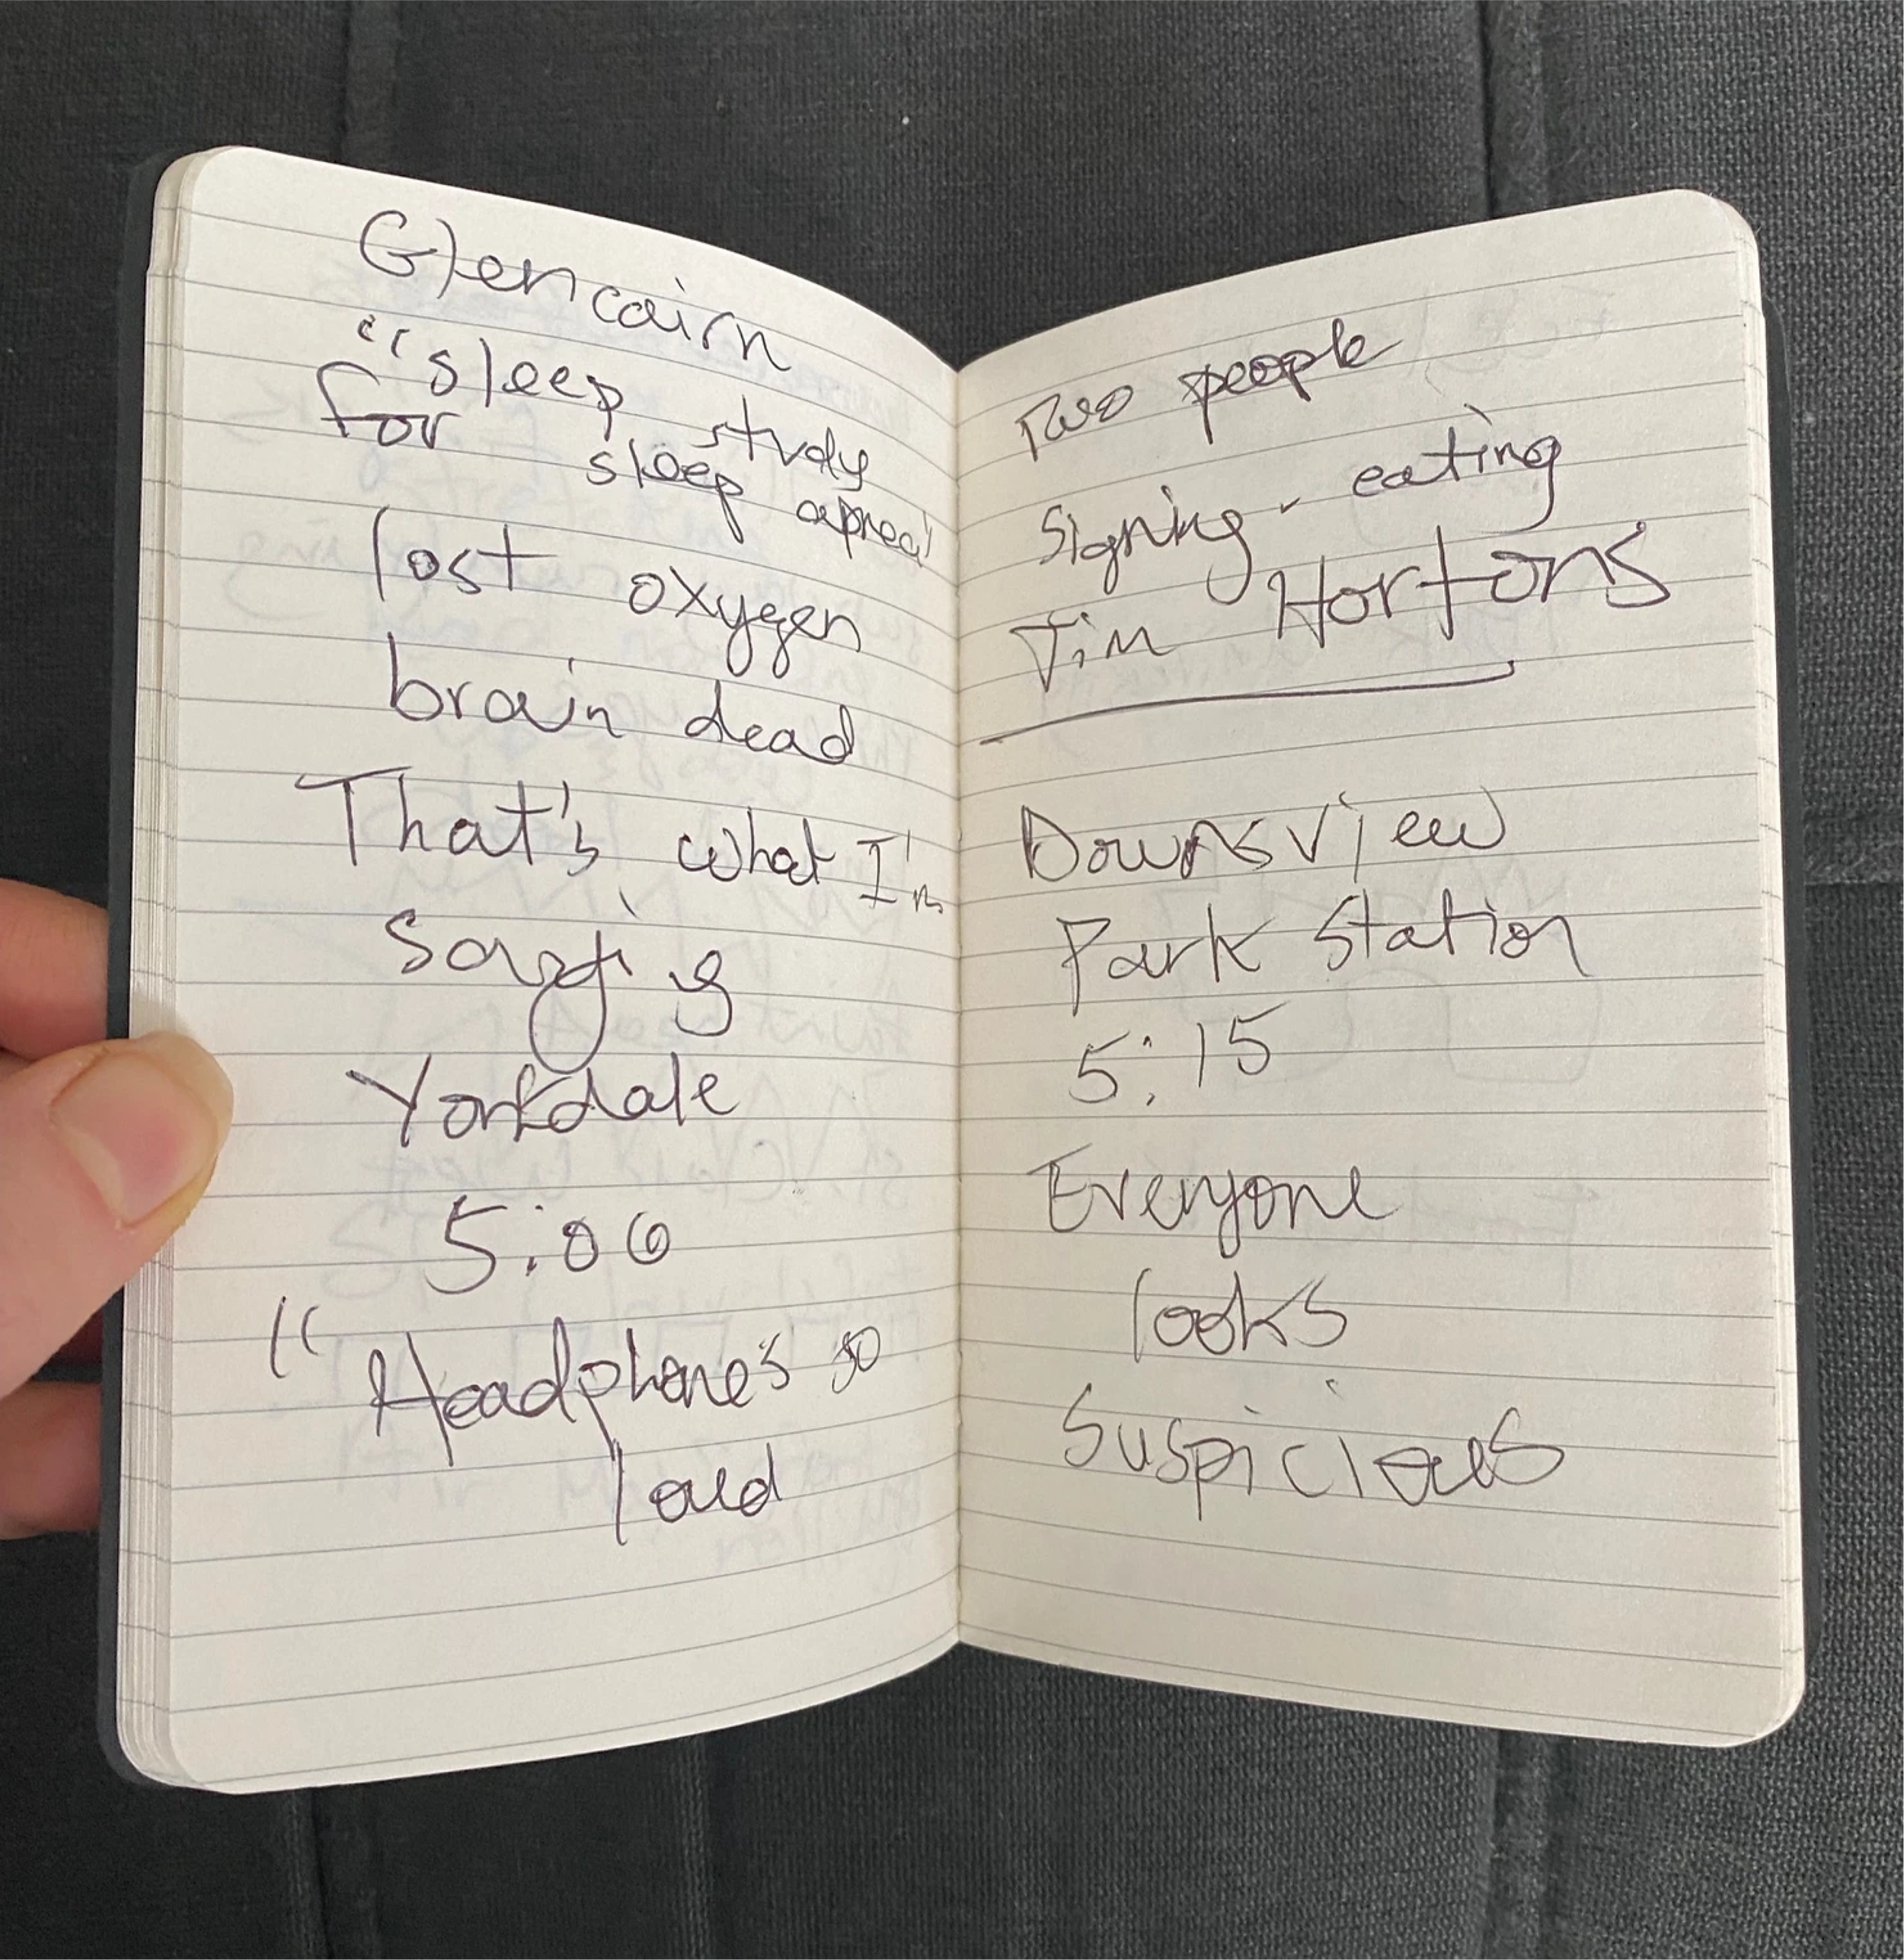 Glencairn
"sleep study
for sleep apnea"
lost oxygen
brain dead
That's what I'm
saying
Yorkdale
5:06
"Headphones so
loud
Two people
signing - eating
Tim Hortons
Downsview
Park Station
5:15
Everyone
looks
suspicious